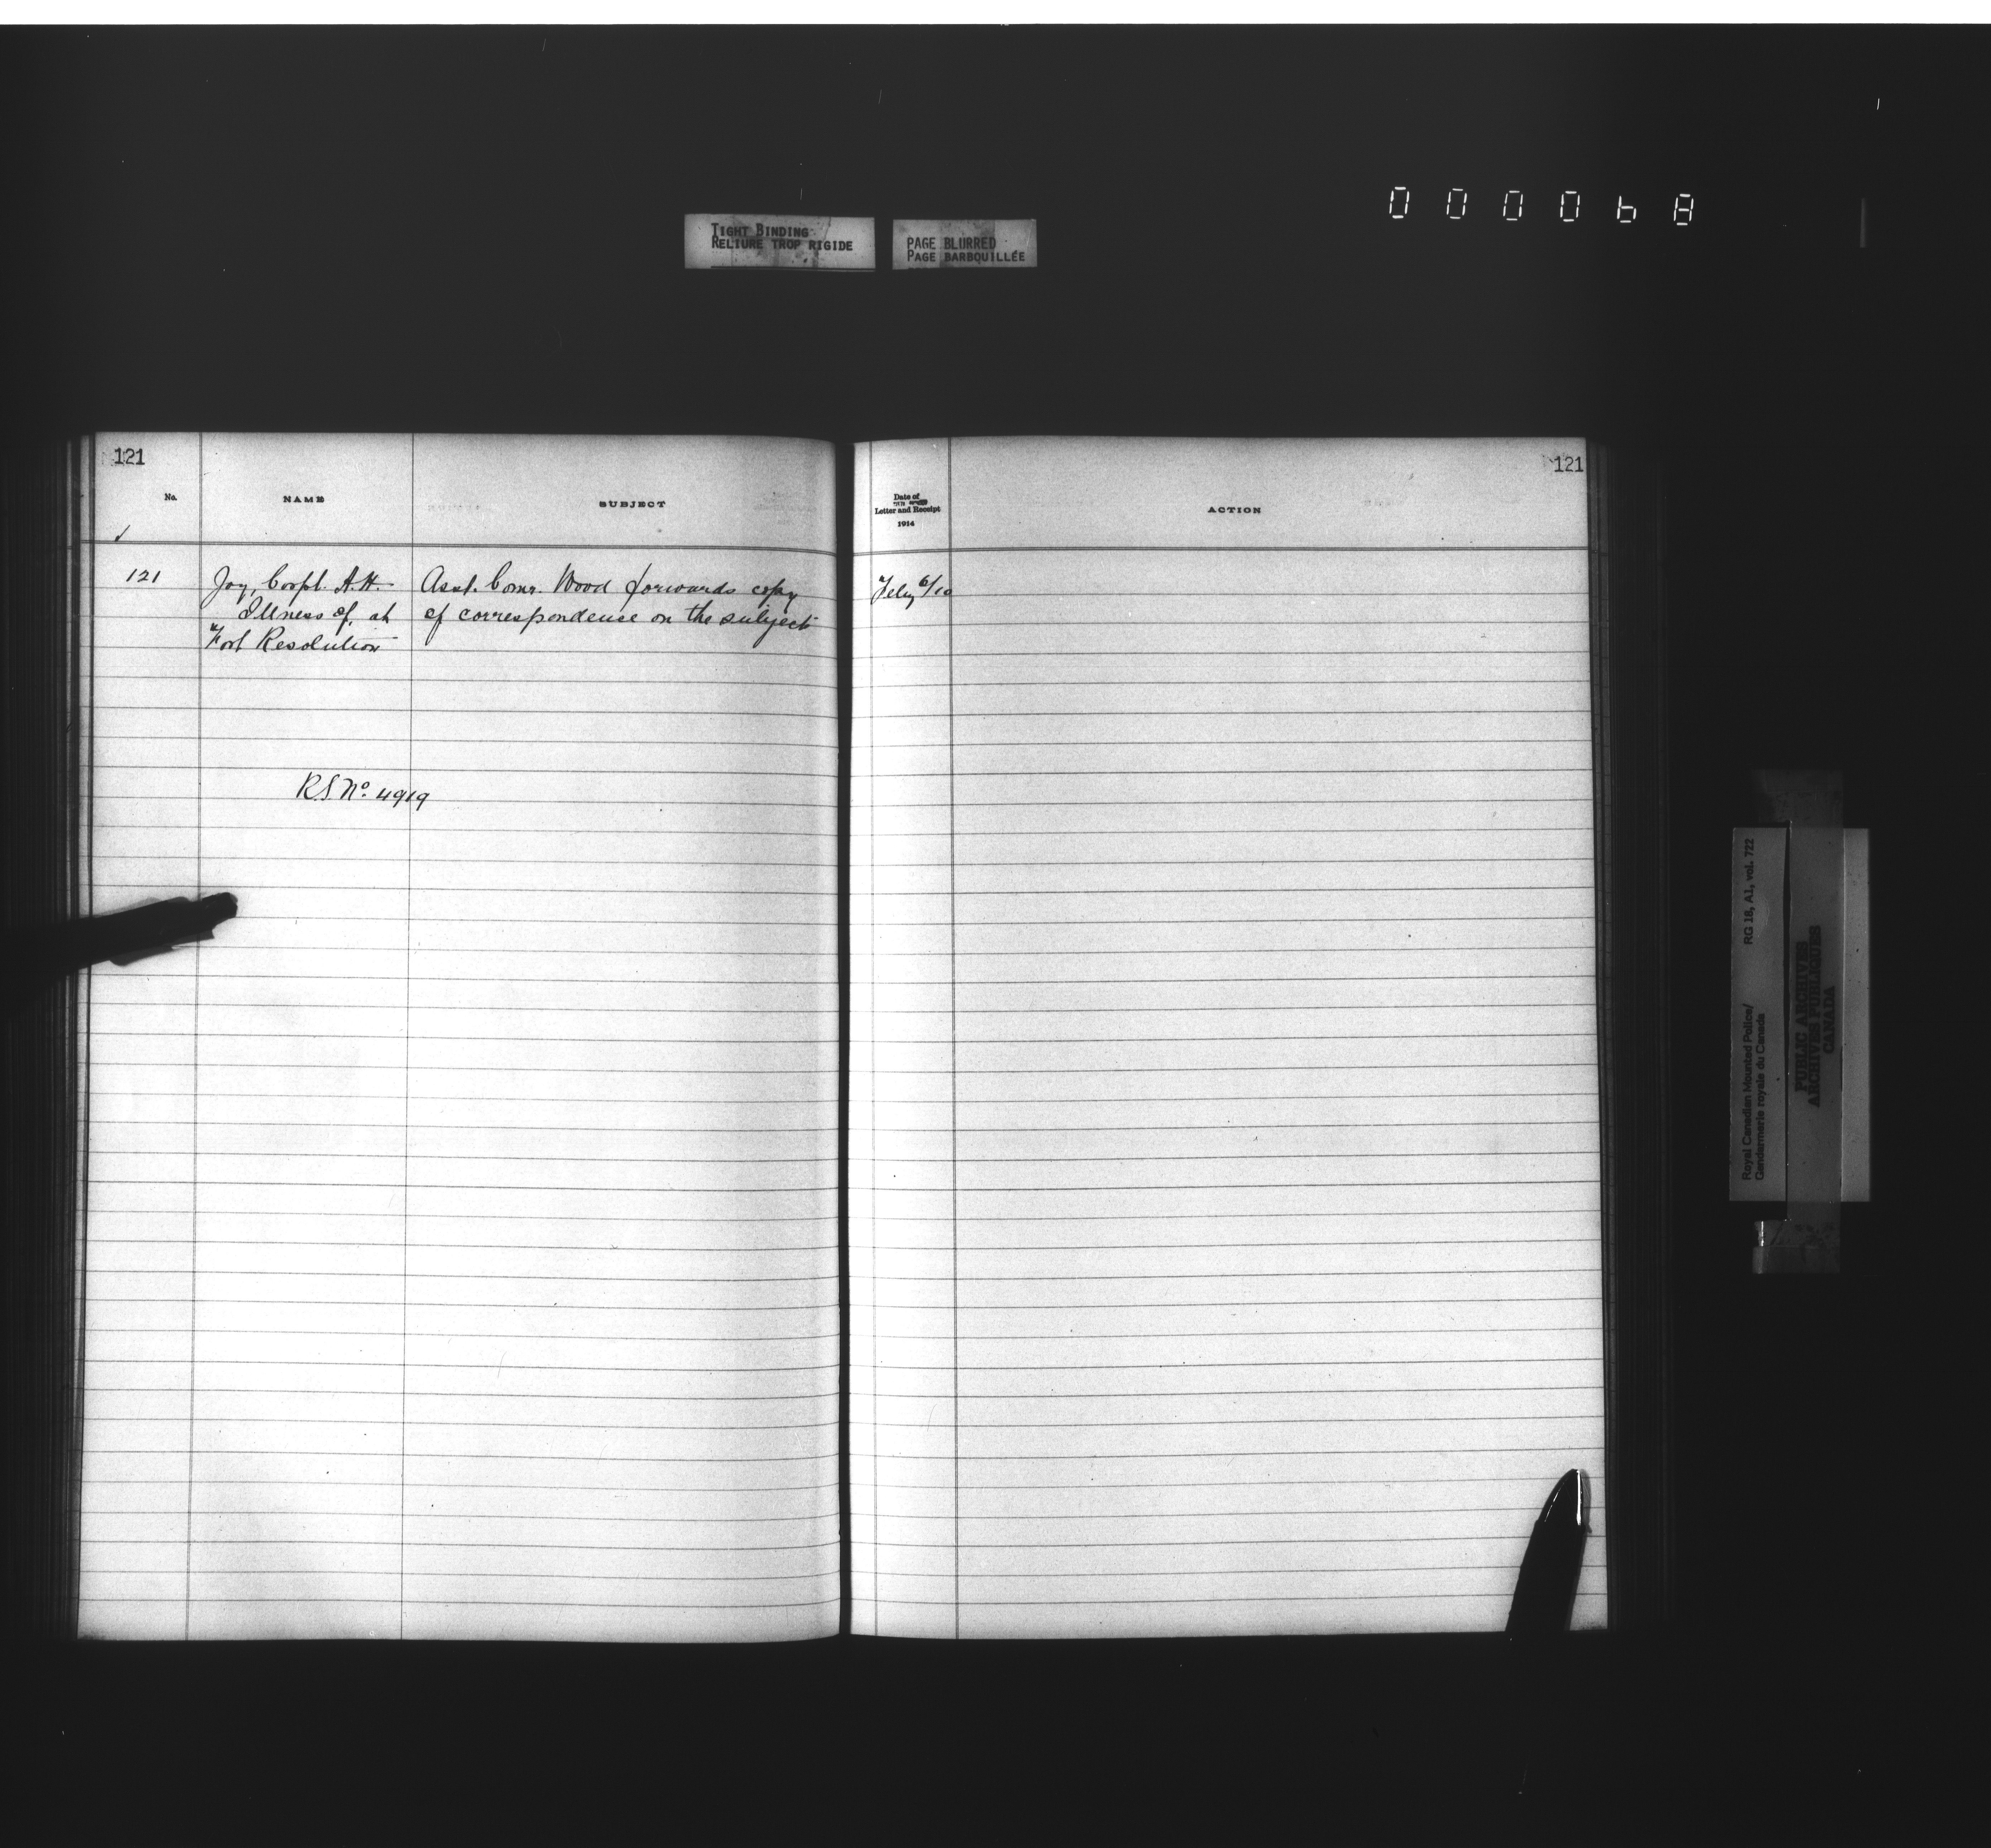 000068
TIGHT BINDING
RELIURE TROP RIGIDE
PAGE BLURRED
PAGE BARBOUILLÉE
121
No.
NAME
SUBJECT
121
Joy, Corpl. A.H.
Illness of, at
Fort Resolution
Asst. Comr. Wood forwards copy
of correspondence on the subject
R.S. No. 4919
121
Date of
Letter and Receipt
1914
ACTION
Feby 6/10
Royal Canadian Mounted Police/
Gendarmerie royale du Canada
RG 18, A1, vol. 722
PUBLIC ARCHIVES
ARCHIVES PUBLIQUES
CANADA